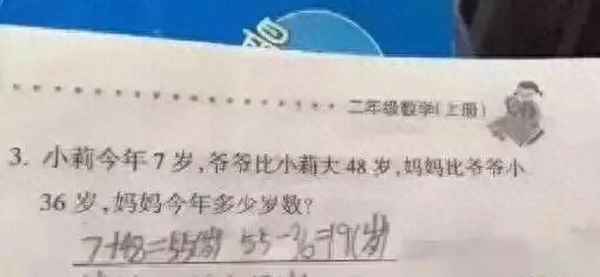 二年级数学(上册)
3. 小莉今年7岁,爷爷比小莉大48岁,妈妈比爷爷小
36岁,妈妈今年多少岁数?
7+48=55(岁) 55-36=19(岁)